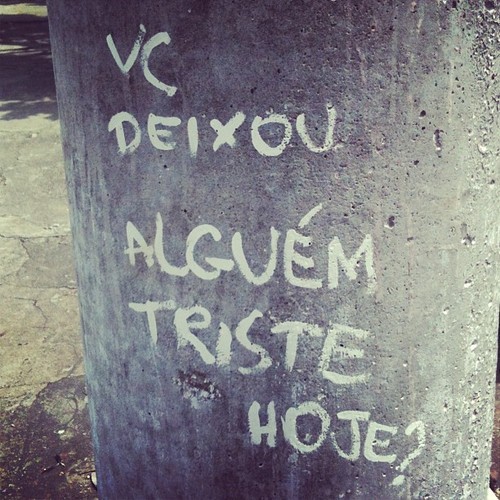 VC
DEIXOU
ALGUÉM
TRISTE
HOJE?